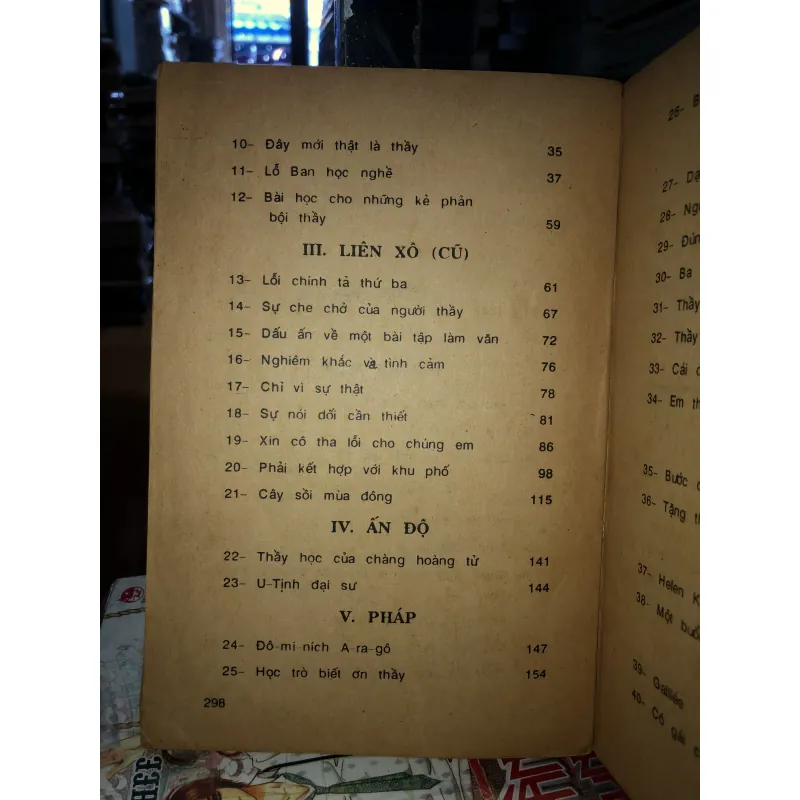 10- Đây mới thật là thầy 35
11- Lỗ Ban học nghề 37
12- Bài học cho những kẻ phản
bội thầy 59
III. LIÊN XÔ (CŨ)
13- Lỗi chính tả thứ ba 61
14- Sự che chở của người thầy 67
15- Dấu ấn về một bài tập làm văn 72
16- Nghiêm khắc và tình cảm 76
17- Chỉ vì sự thật 78
18- Sự nói dối cần thiết 81
19- Xin cô tha lỗi cho chúng em 86
20- Phải kết hợp với khu phố 98
21- Cây sồi mùa đông 115
IV. ẤN ĐỘ
22- Thầy học của chàng hoàng tử 141
23- U-Tịnh đại sư 144
V. PHÁP
24- Đô-mi-ních A-ra-gô 147
25- Học trò biết ơn thầy 154
298
26-
27-
28-
29-
30- Ba
31- Thầy
32- Thầy
33- Cái
34- Em
35- Bước
36- Tặng
37- Helen
38- Một
39- Galilée
40- Cô gái